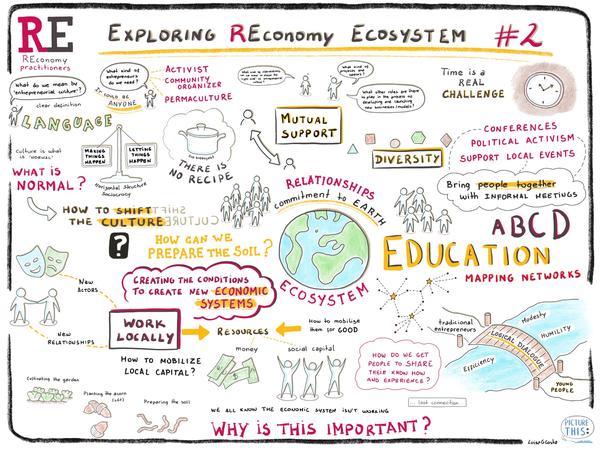 RE
REconomy
practitioners
EXPLORING REconomy ECOSYSTEM #2
What do we mean by
"entrepreneurial culture"?
clear definition
LANGUAGE
What kind of
entrepreneurs
do we need?
It could be
ANYONE
ACTIVIST
COMMUNITY
ORGANIZER
PERMACULTURE
What other roles are there
to play in the process of
developing and launching
new businesses/models?
Time is a
REAL
CHALLENGE
Culture is what
is 'normal'
WHAT IS
NORMAL?
MAKING
THINGS
HAPPEN
LETTING
THINGS
HAPPEN
Horizontal Structure
Sociocracy
THERE IS
NO RECIPE
MUTUAL
SUPPORT
DIVERSITY
CONFERENCES
POLITICAL ACTIVISM
SUPPORT LOCAL EVENTS
Bring people together
with INFORMAL MEETINGS
HOW TO SHIFT
THE CULTURE
SHIFT
CULTURE
?
HOW CAN WE
PREPARE THE SOIL?
RELATIONSHIPS
commitment to EARTH
ECOSYSTEM
ABCD
EDUCATION
MAPPING NETWORKS
CREATING THE CONDITIONS
TO CREATE NEW ECONOMIC
SYSTEMS
New
ACTORS
New
RELATIONSHIPS
WORK
LOCALLY
RESOURCES
How to mobilize
them for GOOD
money
social capital
HOW TO MOBILIZE
LOCAL CAPITAL?
HOW DO WE GET
PEOPLE TO SHARE
THEIR KNOW HOW
AND EXPERIENCE?
lost connection...
traditional
entrepreneurs
Modesty
HUMILITY
LOGICAL DIALOGUE
Efficiency
YOUNG
PEOPLE
Cultivating the garden
Planting the acorn
Preparing the soil
WE ALL KNOW THE ECONOMIC SYSTEM ISN'T WORKING
WHY IS THIS IMPORTANT?
PICTURE
THIS: